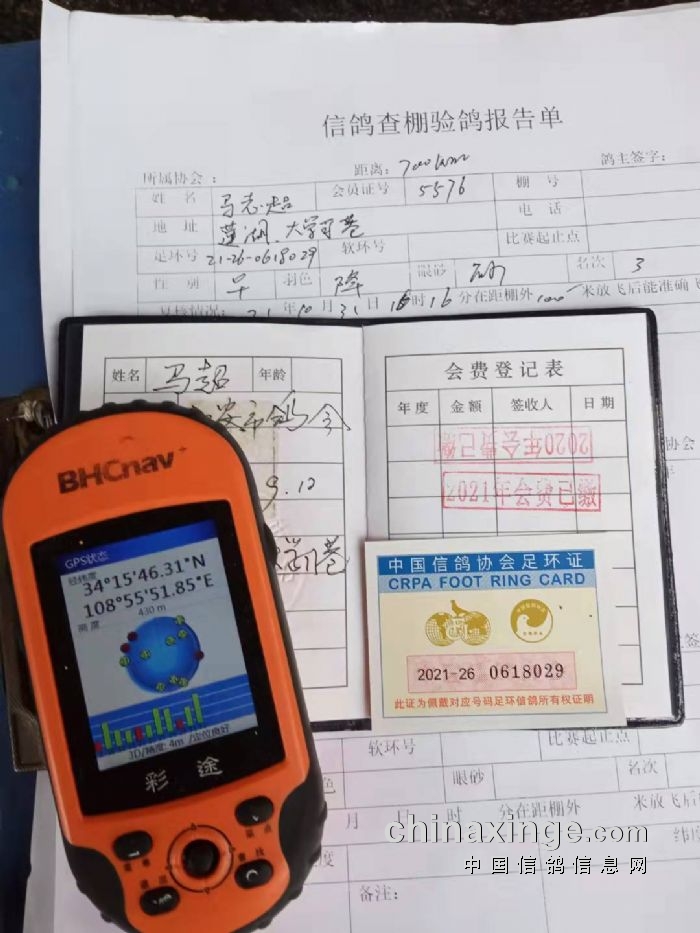 信鸽查棚验鸽报告单
所属协会： 距离：700km 鸽主签字：
姓 名 会员证号 5576 棚 号
地 址 莲湖 大学习巷 电 话
足环号 21-26-0618029 软环号 比赛起止点
性 别 羽色 降 眼砂 砂 名次 3
21年10月31日16时16分在距棚外 米放飞后能准确飞
姓名 马超 年龄
安市鸽会
9.12
学习巷
会费登记表
年度 金额 签收人 日期
2020年会费已缴
2021年会费已缴
中国信鸽协会足环证
CRPA FOOT RING CARD
2021-26 0618029
此证为佩戴对应号码足环信鸽所有权证明
BHCnav
GPS状态
经纬度
34°15'46.31"N
108°55'51.85"E
高度 430 m
3D/精度: 4m /定位良好
彩途
软环号 比赛起止点
色 眼砂 名次
月 日 时 分在距棚外 米放飞后
度 纬度
备注：
chinaxinge.com
中国信鸽信息网